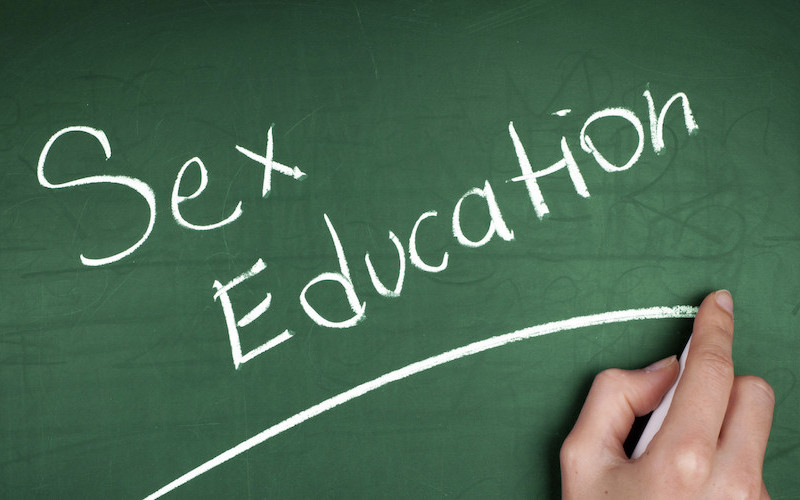 Sex
Education